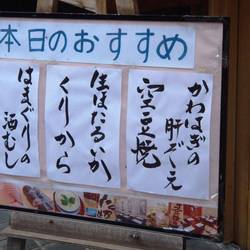 本日のおすすめ
かわはぎの
肝ぞえ
空豆焼
生ほたるいか
くりから
はまぐりの
酒むし